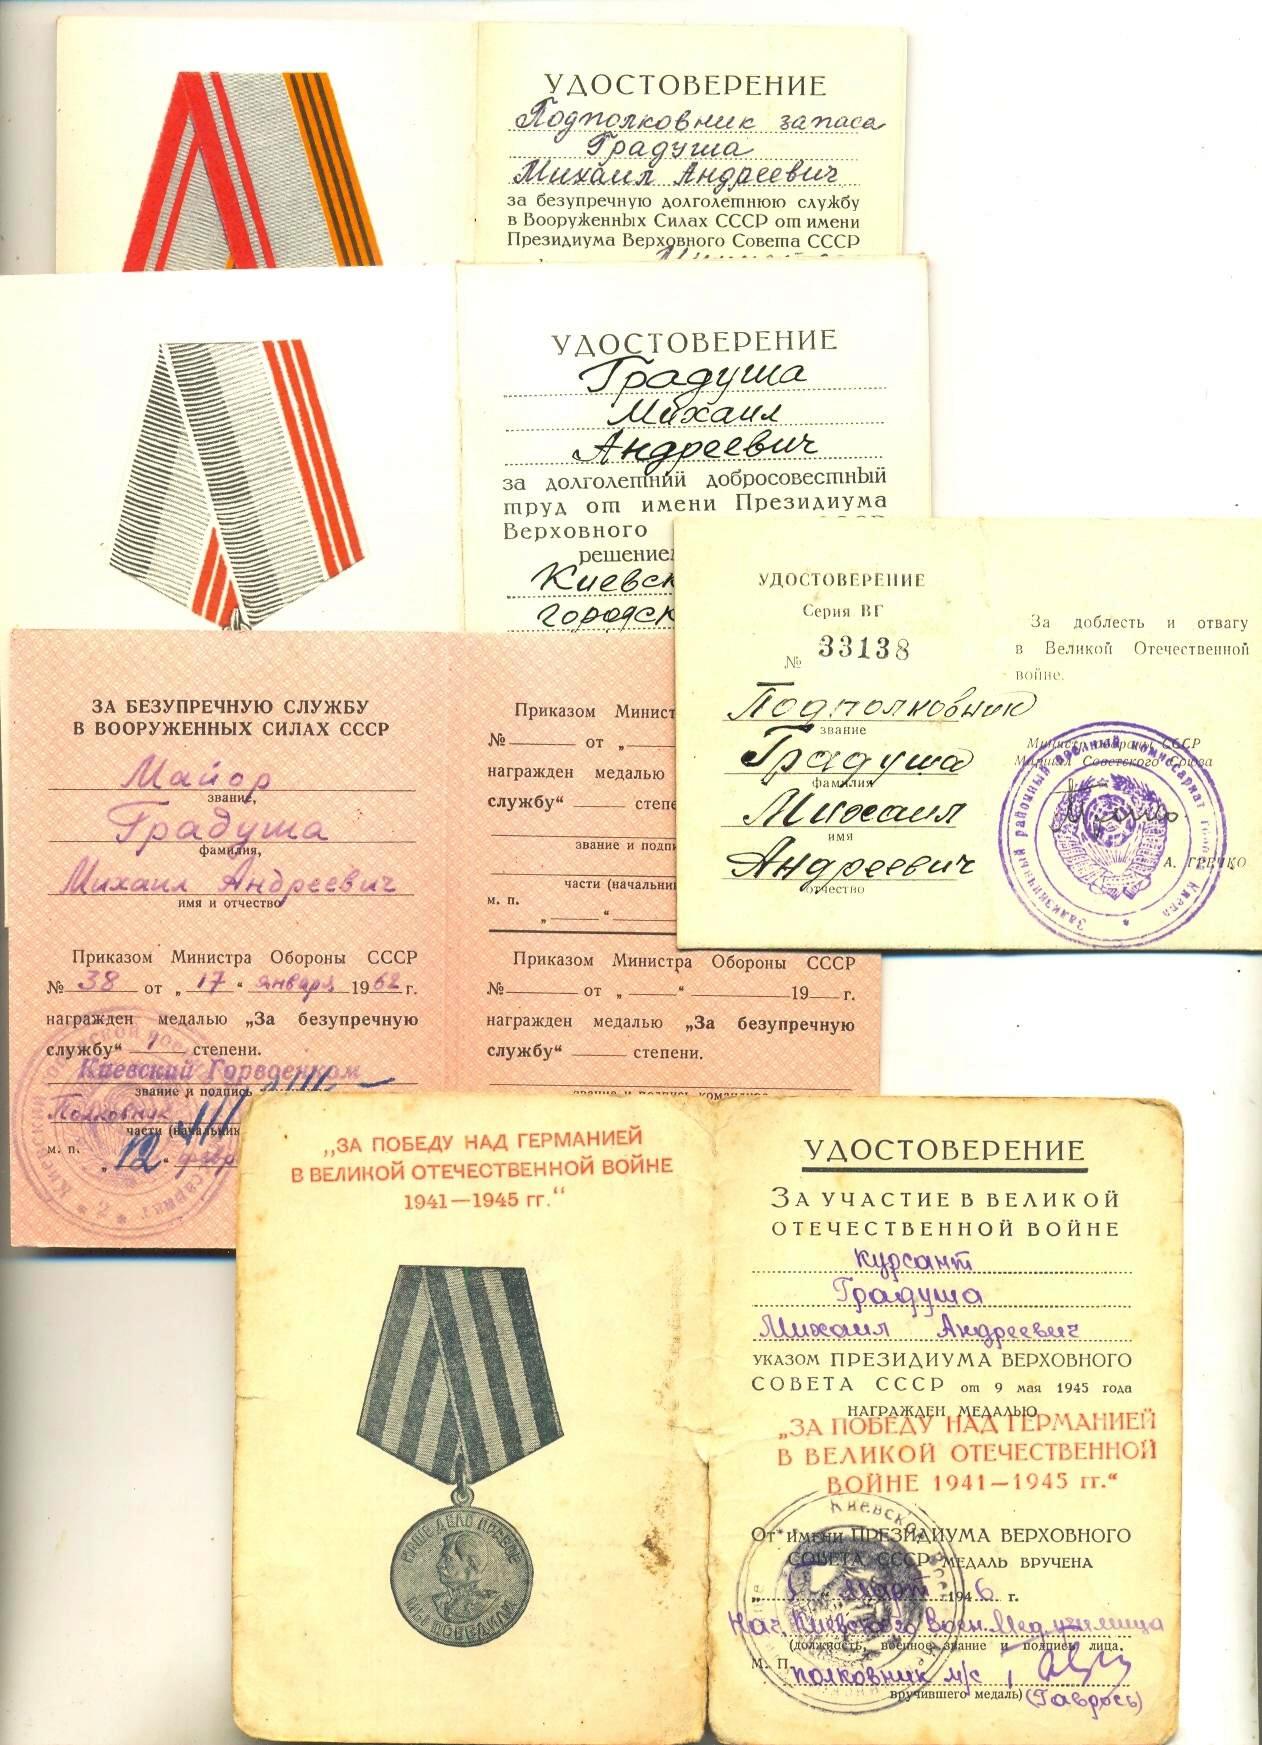 УДОСТОВЕРЕНИЕ
Подполковник запаса
Градуша
Михаил Андреевич
за безупречную долголетнюю службу
в Вооруженных Силах СССР от имени
Президиума Верховного Совета СССР
УДОСТОВЕРЕНИЕ
Градуша
Михаил
Андреевич
за долголетний добросовестный
труд от имени Президиума
Верховного
решением
Киевск
городск
УДОСТОВЕРЕНИЕ
Серия ВГ
№ 33138
Подполковник
звание
Градуша
фамилия
Михаил
имя
Андреевич
отчество
За доблесть и отвагу
в Великой Отечественной
войне.
Министр обороны СССР
Маршал Советского Союза
А. ГРЕЧКО
ЗА БЕЗУПРЕЧНУЮ СЛУЖБУ
В ВООРУЖЕННЫХ СИЛАХ СССР
Майор
звание,
Градуша
фамилия,
Михаил Андреевич
имя и отчество
Приказом Министра Обороны СССР
№ 38 от „17“ января 1962 г.
награжден медалью „За безупречную
службу“ 1 степени.
Киевский Горвоенком
звание и подпись
Полковник
части (начальник
м. п. „12“ февр
Приказом Минист
№ от „
награжден медалью
службу“ степе
звание и подпи
части (начальни
м. п.
„ “
Приказом Министра Обороны СССР
№ от „ “ 19 г.
награжден медалью „За безупречную
службу“ степени.
звание и подпись командира
„ЗА ПОБЕДУ НАД ГЕРМАНИЕЙ
В ВЕЛИКОЙ ОТЕЧЕСТВЕННОЙ ВОЙНЕ
1941—1945 гг.“
НАШЕ ДЕЛО ПРАВОЕ
МЫ ПОБЕДИЛИ
УДОСТОВЕРЕНИЕ
ЗА УЧАСТИЕ В ВЕЛИКОЙ
ОТЕЧЕСТВЕННОЙ ВОЙНЕ
курсант
Градуша
Михаил Андреевич
УКАЗОМ ПРЕЗИДИУМА ВЕРХОВНОГО
СОВЕТА СССР от 9 мая 1945 года
НАГРАЖДЕН МЕДАЛЬЮ
„ЗА ПОБЕДУ НАД ГЕРМАНИЕЙ
В ВЕЛИКОЙ ОТЕЧЕСТВЕННОЙ
ВОЙНЕ 1941—1945 гг.“
ОТ ИМЕНИ ПРЕЗИДИУМА ВЕРХОВНОГО
СОВЕТА СССР МЕДАЛЬ ВРУЧЕНА
март 1946 г.
Нач. Киевского Воен. Мед. училища
(должность, военное звание и подпись лица,
М. П. полковник м/с
вручившего медаль) (Гаврось)